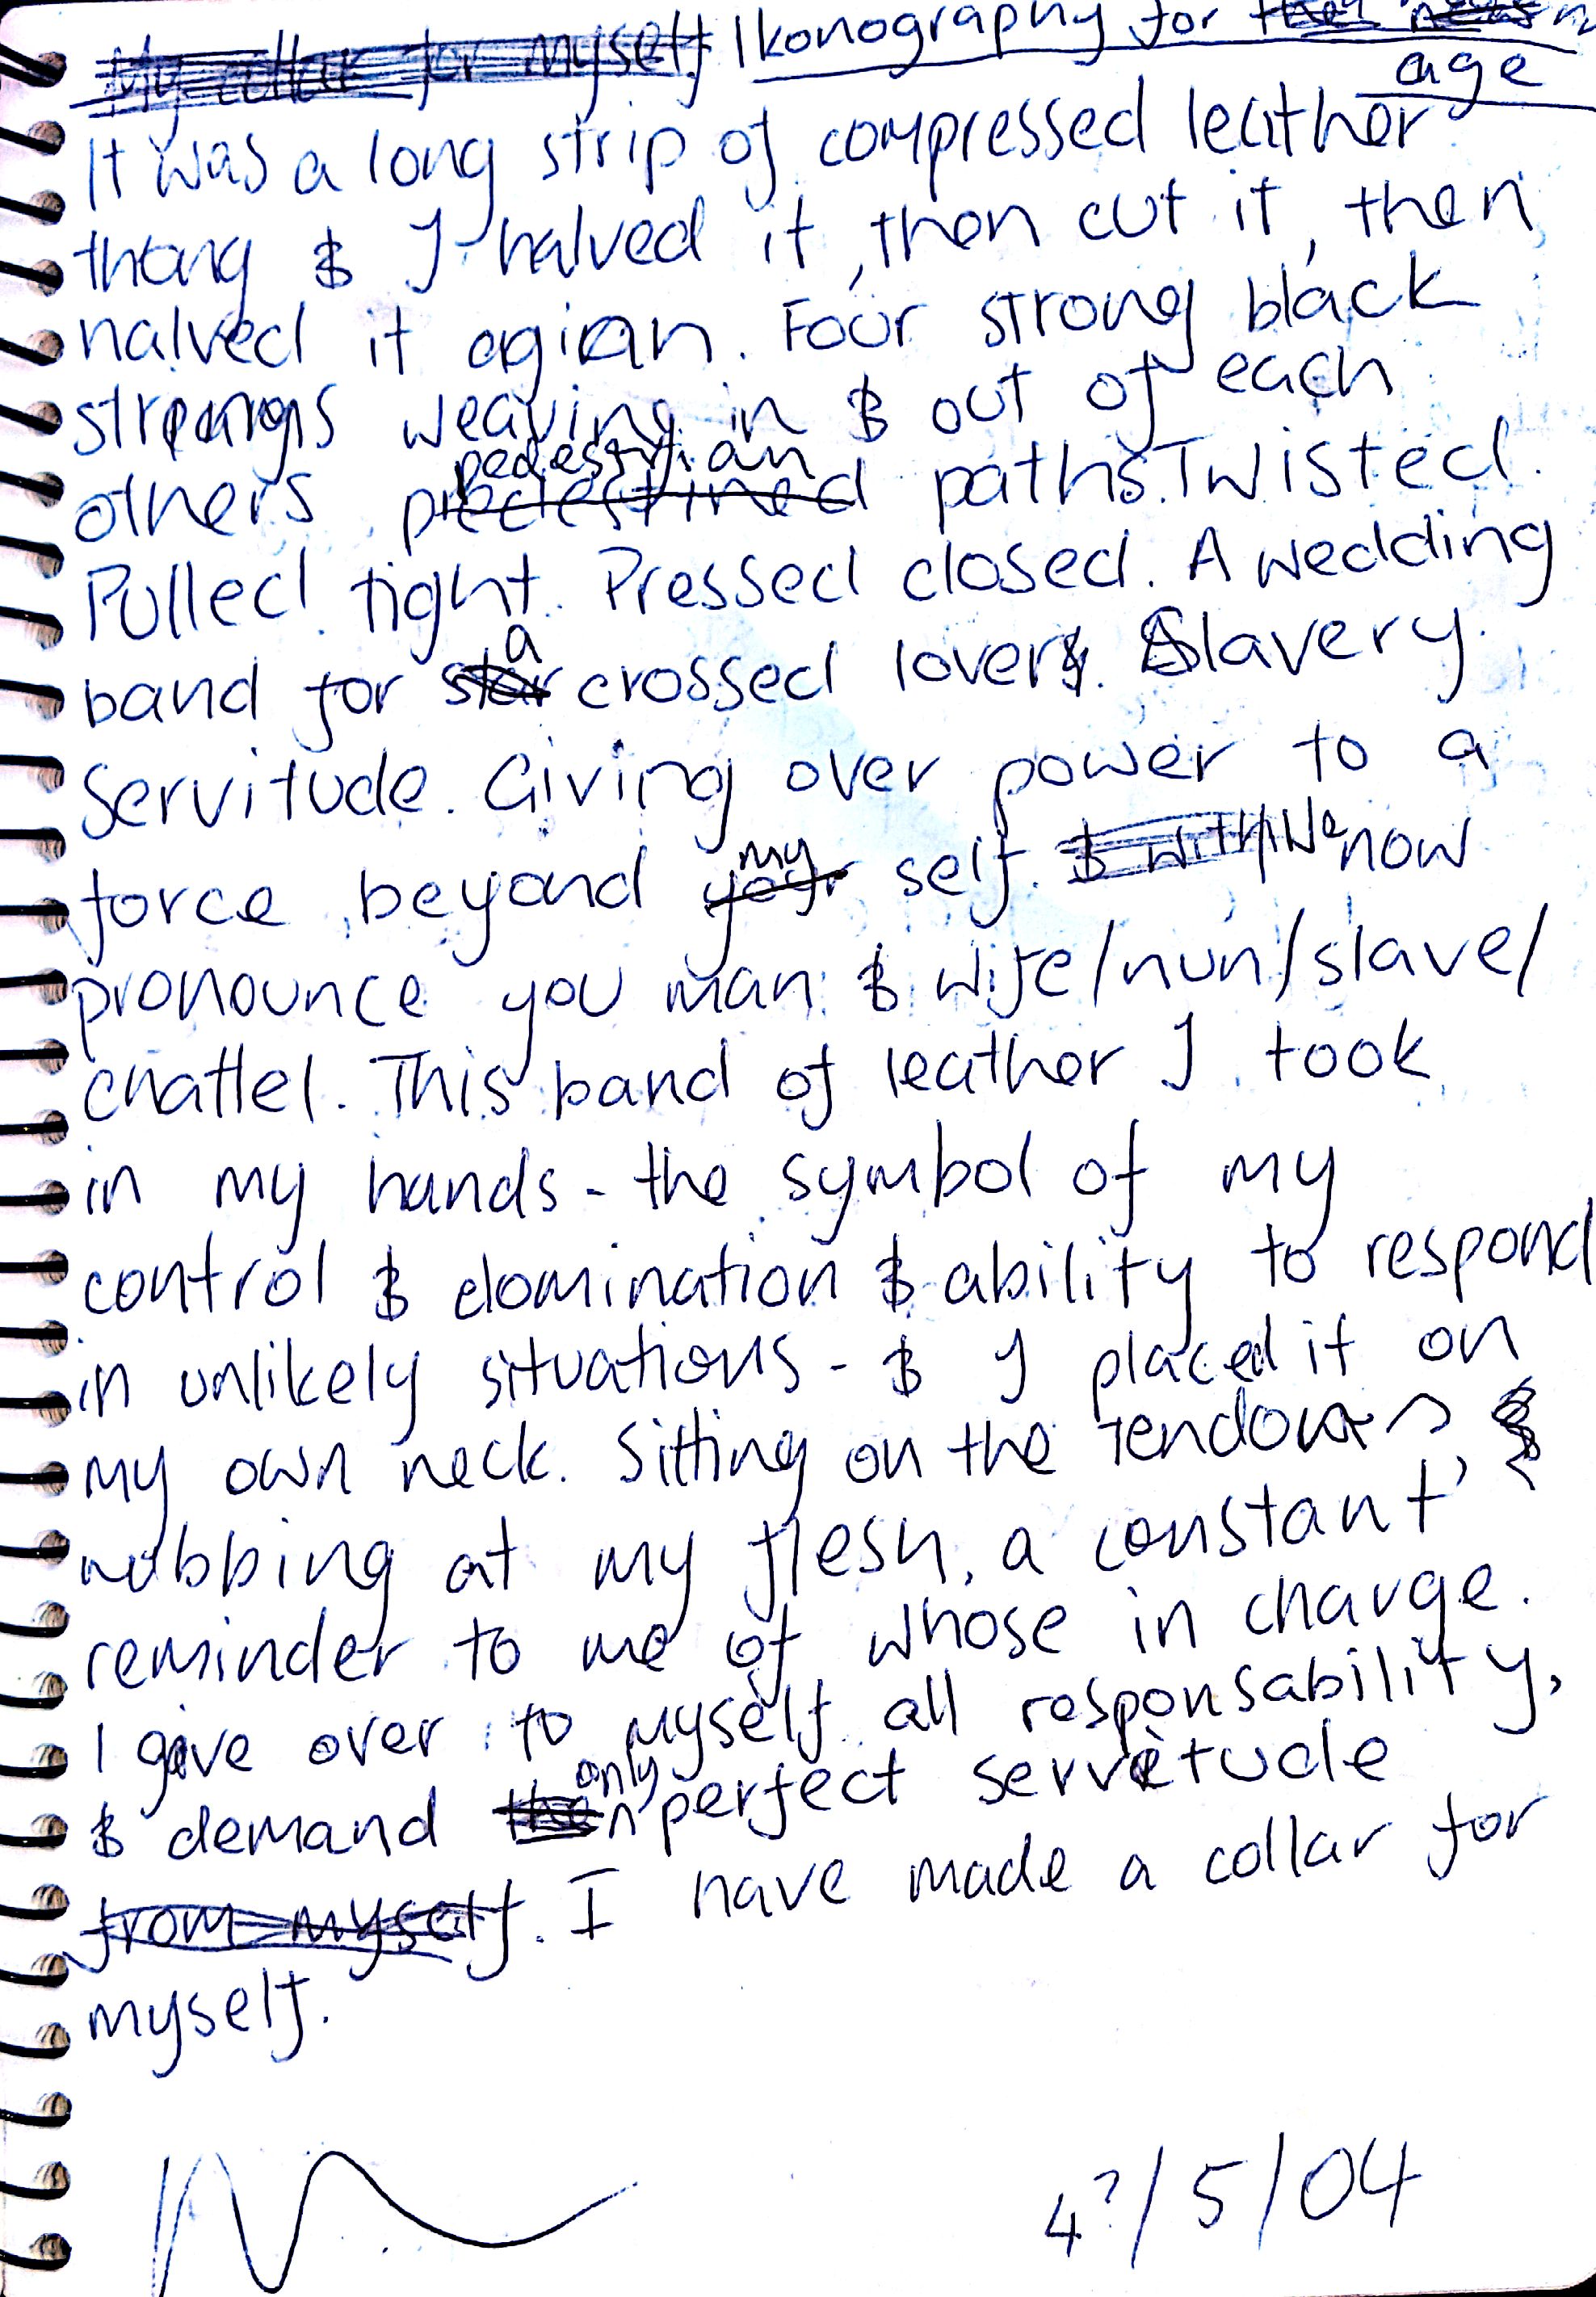 My collar for myself Ikonography for
age
It was a long strip of compressed leather
thong & I halved it, then cut it, then
halved it agian. Four strong black
strands weaving in & out of each
pedestrian
others predestined paths. Twisted.
Pulled tight. Pressed closed. A wedding
a
band for star crossed lover. Slavery.
Servitude. Giving over power to a
my
force beyond your self. & with We now
pronounce you man & wife/nun/slave/
chattel. This band of leather I took
in my hands - the symbol of my
control & domination & ability to respond
in unlikely situations - & I placed it on
my own neck. Sitting on the tendons,
rubbing at my flesh, a constant
reminder to me of whose in charge.
I give over to myself all responsability,
only
& demand perfect servitude
from myself. I have made a collar for
myself.
4?/5/04